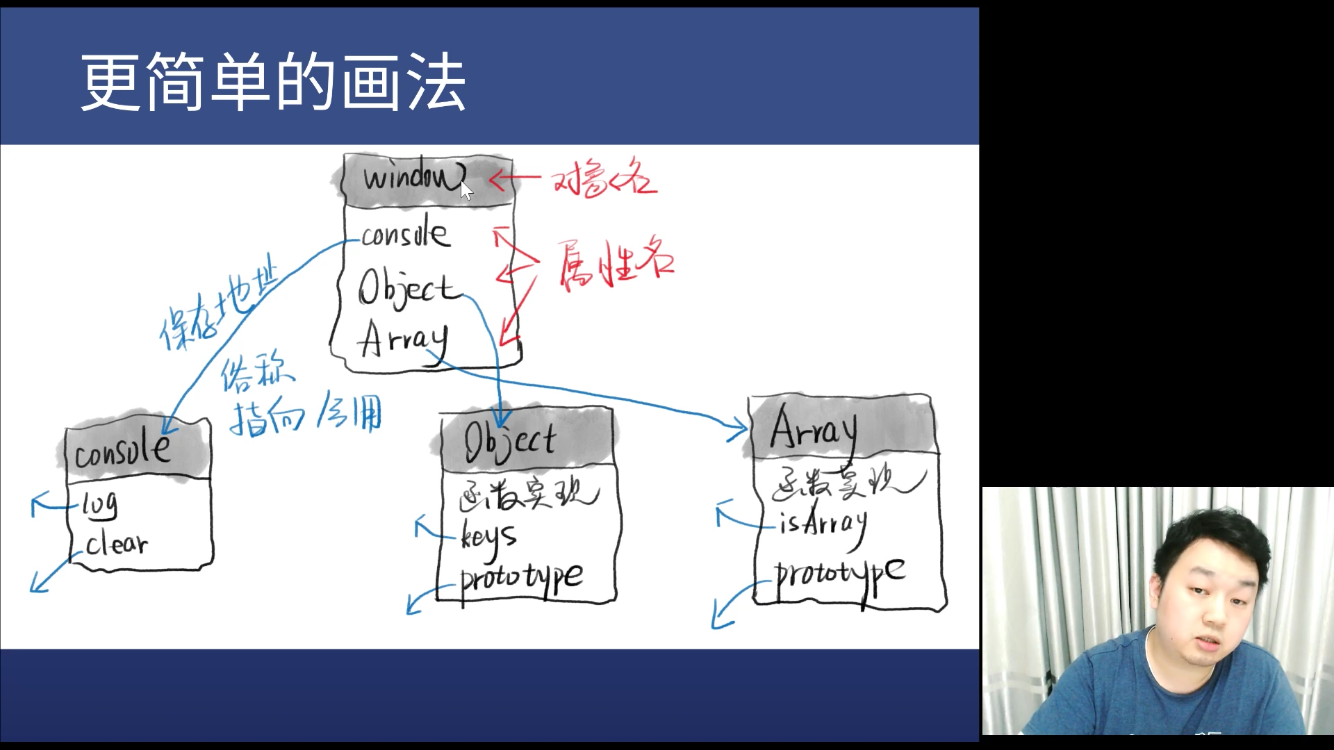 更简单的画法
window
对象名
console
Object
Array
属性名
保存地址
俗称
指向/引用
console
log
clear
Object
函数实现
keys
prototype
Array
函数实现
isArray
prototype